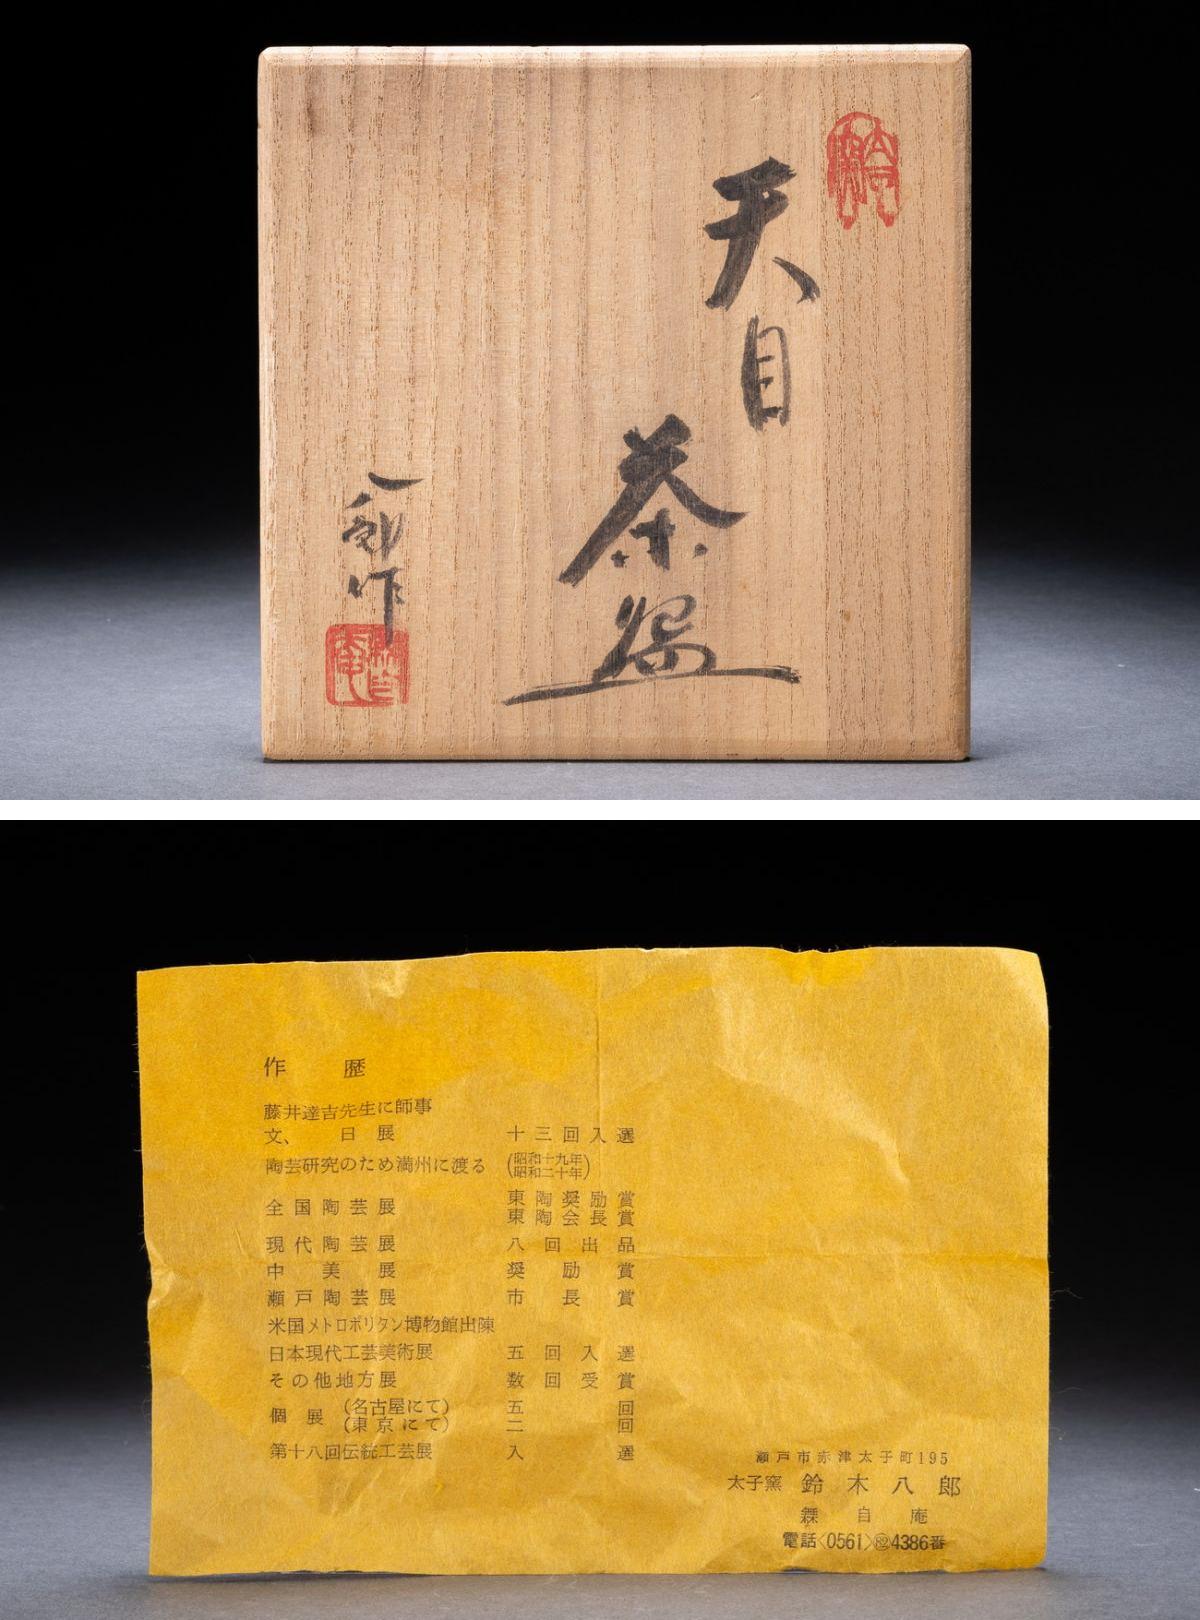 天目
茶盌
八郎作
作 歴
藤井達吉先生に師事
文、 日展 十三回入選
陶芸研究のため満州に渡る (昭和十九年 昭和二十年)
全国陶芸展 東陶奨励賞 東陶会長賞
現代陶芸展 八回出品
中美展 奨励賞
瀬戸陶芸展 市長賞
米国メトロポリタン博物館出陳
日本現代工芸美術展 五回入選
その他地方展 数回受賞
個展 (名古屋にて) 五回
(東京にて) 二回
第十八回伝統工芸展 入選
瀬戸市赤津太子町195
太子窯 鈴木八郎
自庵
電話<0561>82 4386番